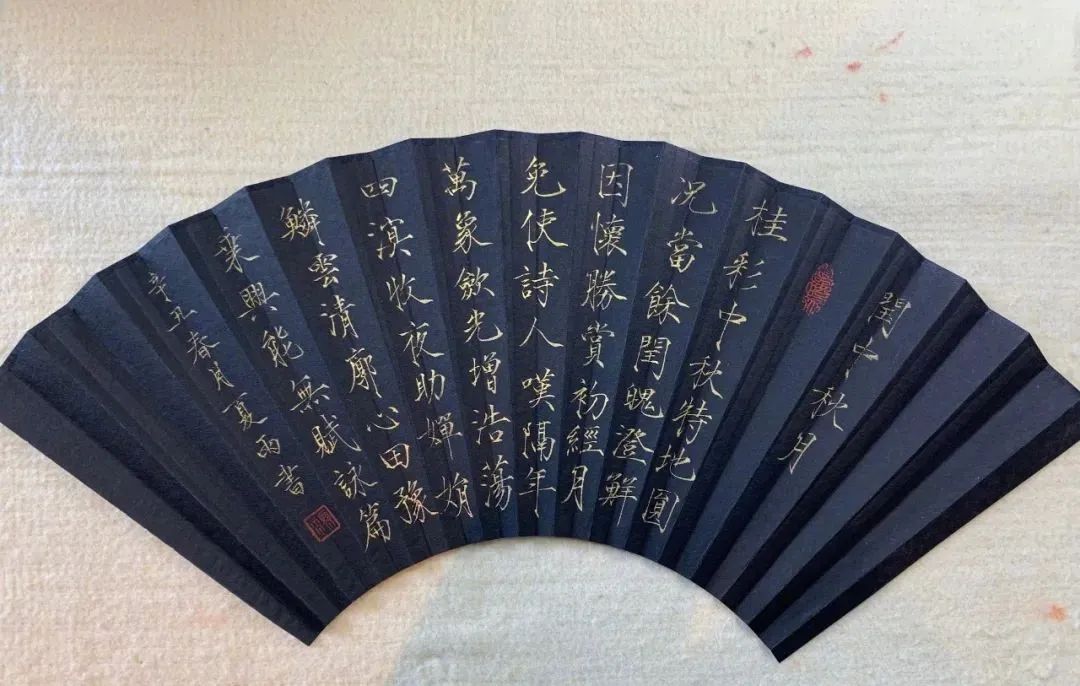 閏中秋月
桂彩中秋特地圓
況當餘閏魄澄鮮
因懷勝賞初經月
免使詩人嘆隔年
萬象歛光增浩蕩
四溟收夜助嬋娟
鱗雲清廓心田豫
乘興能無賦詠篇
辛丑春月夏雨書